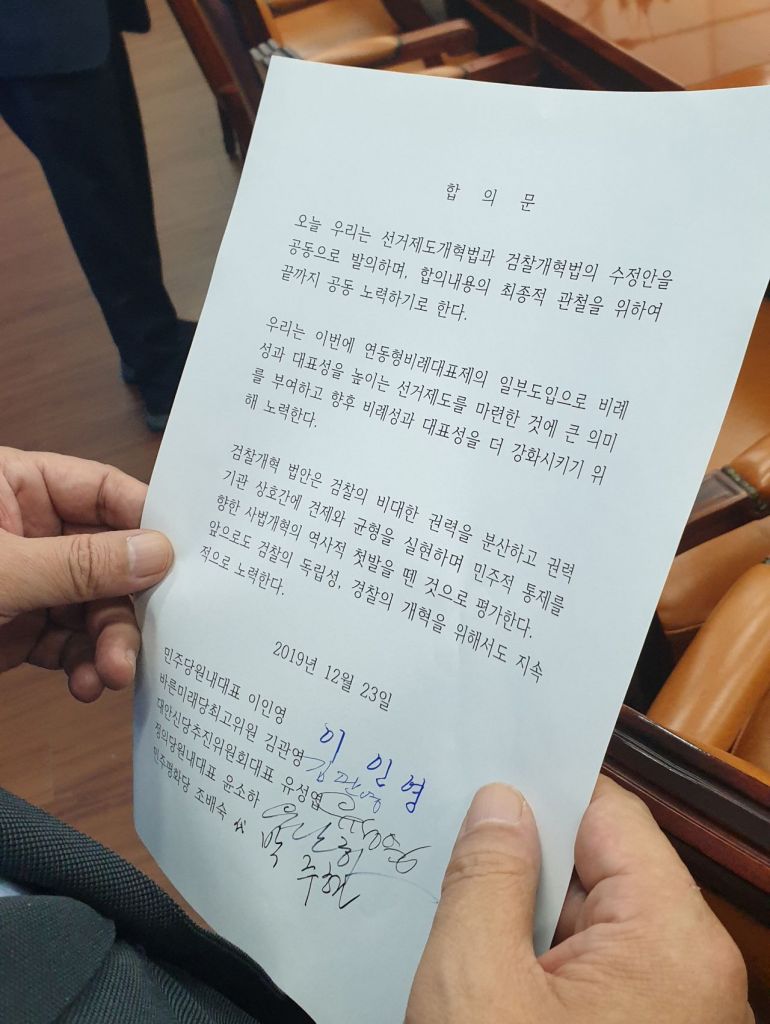 합 의 문
오늘 우리는 선거제도개혁법과 검찰개혁법의 수정안을
공동으로 발의하며, 합의내용의 최종적 관철을 위하여
끝까지 공동 노력하기로 한다.
우리는 이번에 연동형비례대표제의 일부도입으로 비례
성과 대표성을 높이는 선거제도를 마련한 것에 큰 의미
를 부여하고 향후 비례성과 대표성을 더 강화시키기 위
해 노력한다.
검찰개혁 법안은 검찰의 비대한 권력을 분산하고 권력
기관 상호간에 견제와 균형을 실현하며 민주적 통제를
향한 사법개혁의 역사적 첫발을 뗀 것으로 평가한다.
앞으로도 검찰의 독립성, 경찰의 개혁을 위해서도 지속
적으로 노력한다.
2019년 12월 23일
민주당원내대표 이인영 이 인 영
바른미래당최고위원 김관영 김관영
대안신당추진위원회대표 유성엽
정의당원내대표 윤소하 윤소하
민주평화당 조배숙 代 박주현